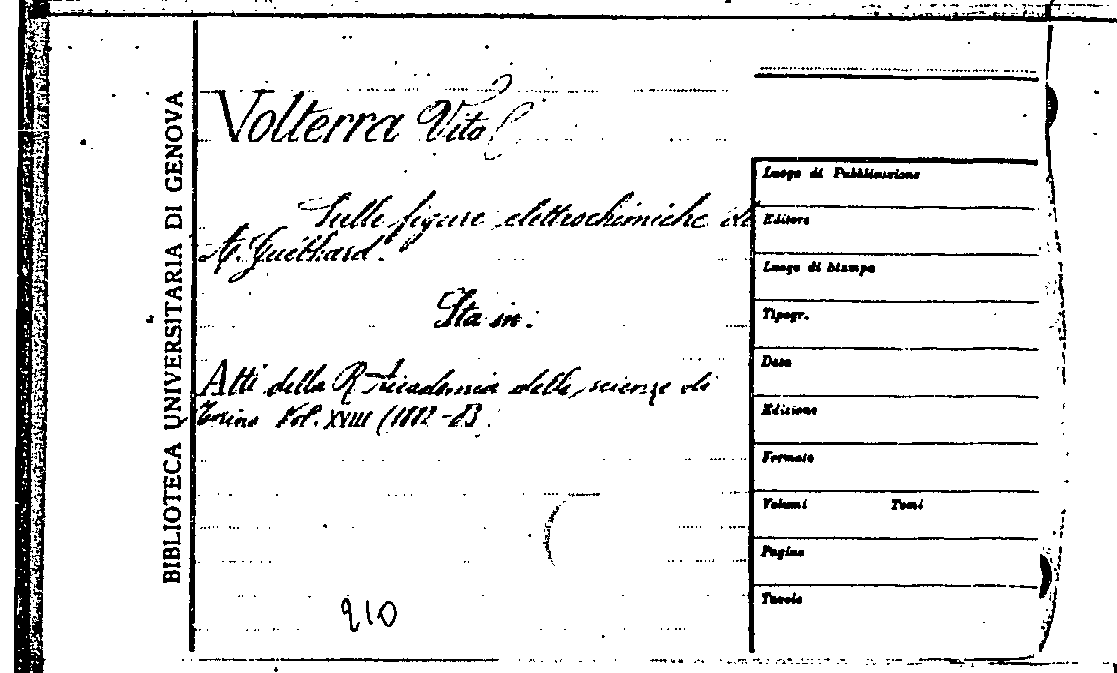 BIBLIOTECA UNIVERSITARIA DI GENOVA
Volterra Vito
Sulle figure elettrochimiche di
A. Guébhard.
Sta in:
Atti della R. Accademia delle scienze di
Torino Vol. XVIII (1882-83
210
Luogo di Pubblicazione
Editore
Luogo di Stampa
Tipogr.
Data
Edizione
Formato
Volumi Tomi
Pagine
Tavole